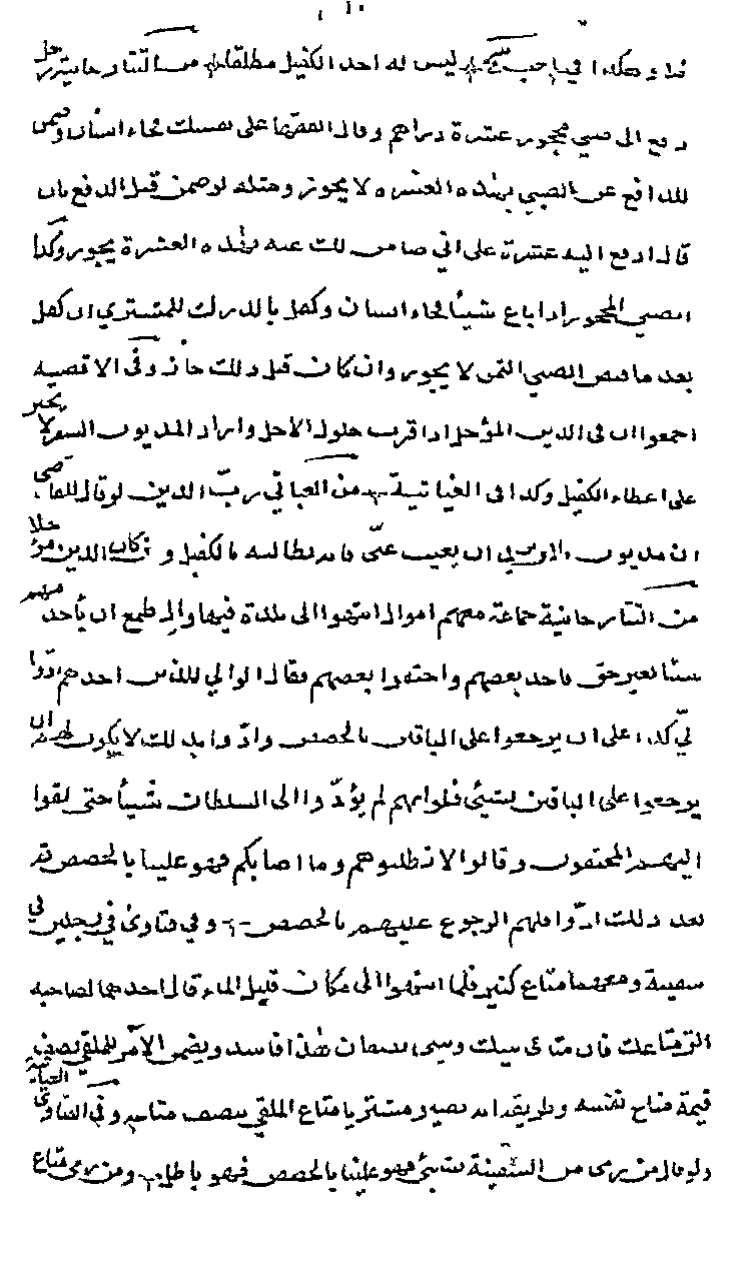 وهكذا في ليس له اخذ الكفيل مطلقا من التتارخانية رجل
دفع الى صبي محجور عشرة دراهم وقال انفقها على نفسك فجاء انسان وضمن
للدافع عن الصبي بهذه العشرة لا يجوز ومثله لو ضمن قبل الدفع بان
قال ادفع اليه عشرة على اني ضامن لك عنه بهذه العشرة يجوز وكذا
الصبي المحجور اذا باع شيأ فجاء انسان وكفل بالدرك للمشتري ان كفل
بعد ما قبض الصبي الثمن لا يجوز وان كان قبل ذلك جاز وفي الاقضية
اجمعوا ان في الدين المؤجل اذا قرب حلول الاجل واراد المديون السفر لا يجبر
على اعطاء الكفيل وكذا في الغياثية من العتابي رب الدين لو قال للقاضي
ان مديون يريد ان يغيب عني فانه يطالبه بالكفيل وان كان الدين مؤجلا
من التتارخانية جماعة معهم اموال انتهوا الى بلدة فيها وال طمع ان يأخذ منهم
شيئا بغير حق فاخذ بعضهم واختفوا بعضهم فقال الوالي للذين اخذهم ادوا
لي كذا على ان يرجعوا على الباقين بالحصص وادوا بذلك لا يكون لهم ان
يرجعوا على الباقين بشيئ فلو انهم لم يؤدوا الى السلطان شيأ حتى لقوا
اليهم المختفون وقالوا لا تطلبوهم وما اصابكم فهو علينا بالحصص ثم
بعد ذلك ادوا فلهم الرجوع عليهم بالحصص وفي فتاوى في رجلين في
سفينة ومعهما متاع كثير فلما انتهوا الى مكان قليل الماء قال احدهما لصاحبه
الق متاعك فان متاعي بينك وبيني نصفان هذا فاسد ويضمن الآمر للملقي نصف
قيمة متاع نفسه وطريقه انه يصير مشتريا متاع الملقي بنصف متاعه وفي الفتاوى العتابية
ولو قال من يرمى من السفينة شيئ فهو علينا بالحصص فهو باطل ومن رمى متاع